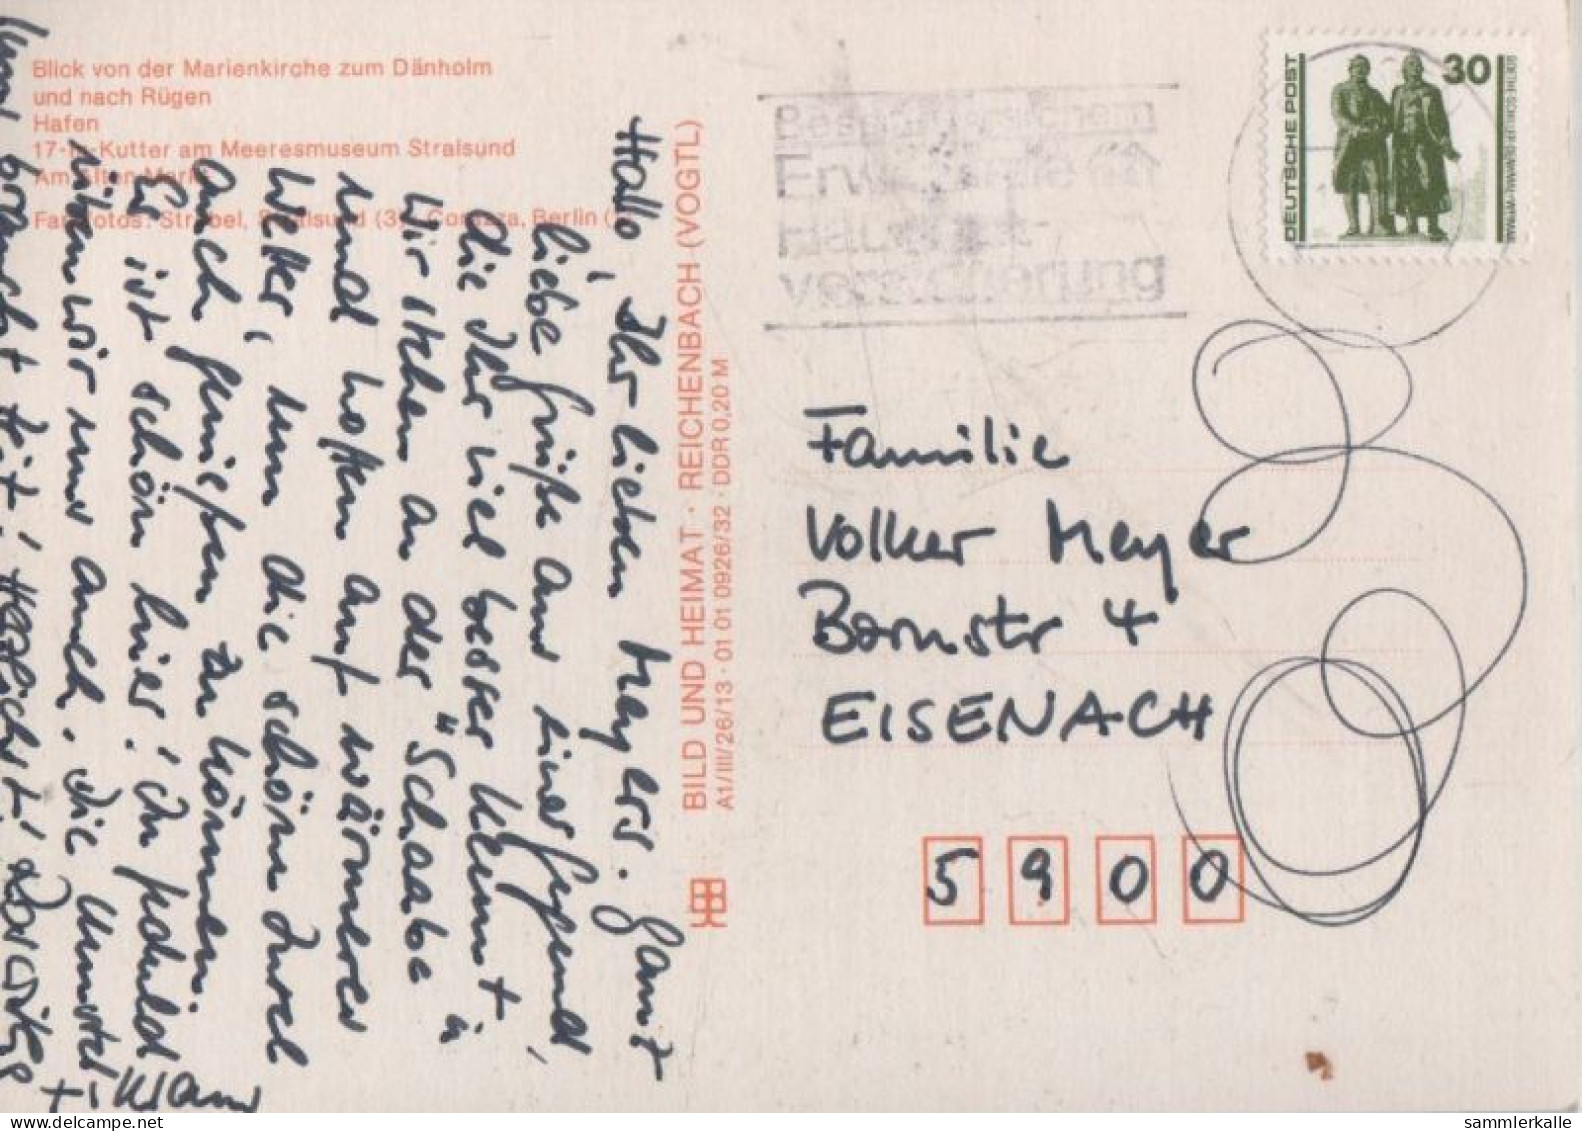 Blick von der Marienkirche zum Dänholm
und nach Rügen
Hafen
17-m-Kutter am Meeresmuseum Stralsund
Am Alten Markt
Farbfotos: Ströbel, Stralsund (3), Berlin
BILD UND HEIMAT · REICHENBACH (VOGTL)
A1/III/26/13 · 01 01 0926/32 · DDR 0,20 M
Hallo, Ihr lieben Meyers. Ganz
liebe Grüße aus einer Gegend,
die Ihr viel besser kennt
Wir stehen an der "Schaabe
und hoffen auf wärmeres
Wetter, um die schöne Insel
auch genießen zu können.
Es ist schön hier! In Geduld
üben wir uns auch. Die Umstel-
lung braucht Zeit! Herzlichst!
+ Klaus
DEUTSCHE POST
30
Erw
Hausrat-
versicherung
Familie
Volker Meyer
Bornstr 4
EISENACH
5900
sammlerkalle